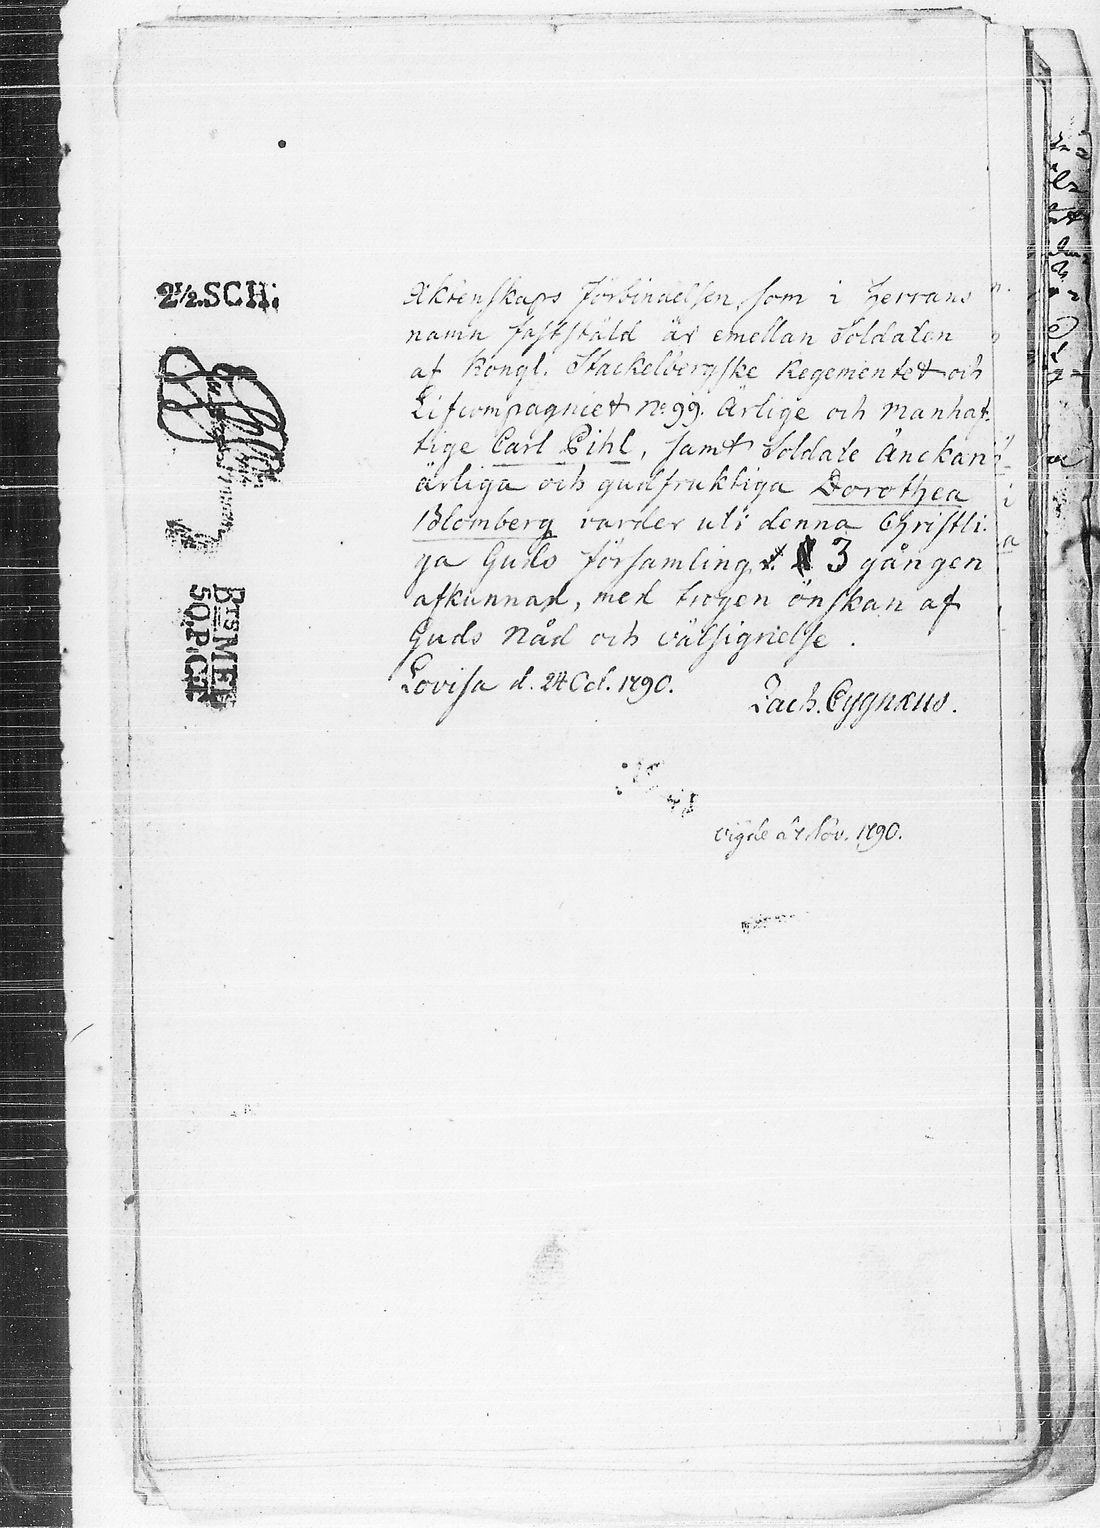 2½.SCH:
Brs MEL
50.P.CT
Äktenskaps Förbindelsen, som i Herrans
namn fastställd är emellan Soldaten
af Kongl. Stackelbergske Regementet och
Lifcompagniet No 99. Ärlige och Manhaf-
tige Carl Pihl, samt Soldate Änckan
ärliga och gudfruktiga Dorothea
Blomberg varder uti denna Christli-
ga Guds Församling 3 gången
afkunnad, med trogen önskan af
Guds Nåd och välsignelse.
Lovisa d. 24 Oct. 1790.
Zach. Cygnæus.
vigde d 7 Nov. 1790.